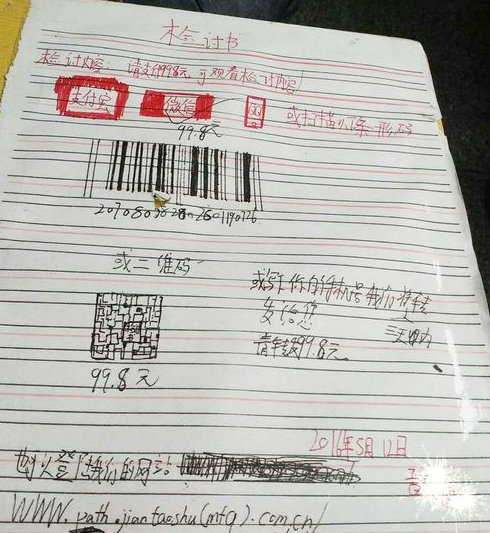 检讨书
检讨内容：请支付99.8元可观看检讨内容
支付宝 微信 或扫描以下条形码
99.8元
或二维码
或写下你的手机号我们将在三天以内
发给您
请年找99.8元
99.8元
2016年5月12日
也可以登陆我们的网站
www.path.jiantaoshu(mfq).com.cn/